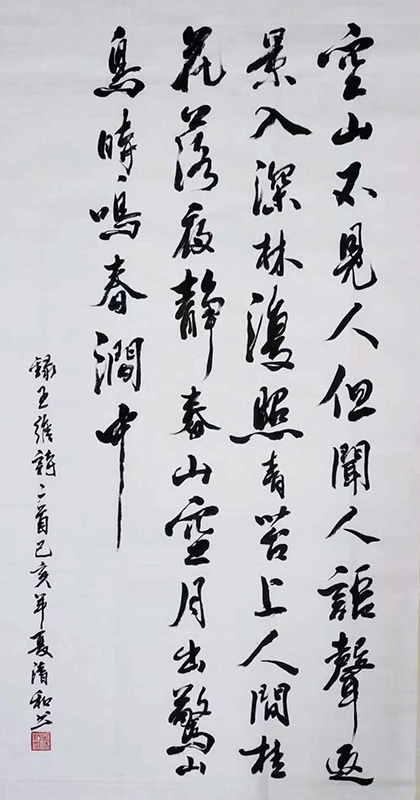 空山不見人但聞人語聲返
景入深林復照青苔上人間桂
花落夜静春山空月出驚山
鳥時鳴春澗中
録王維詩二首己亥年夏清和书